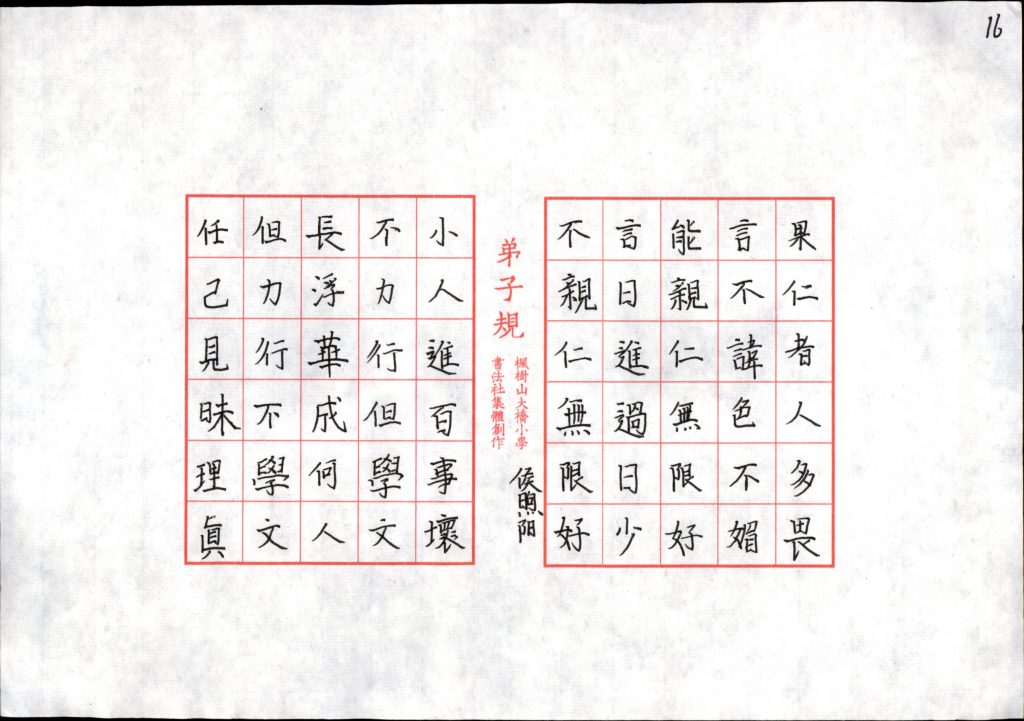 16
果仁者人多畏
言不諱色不媚
能親仁無限好
言日進過日少
不親仁無限好
弟子規
楓樹山大橋小學
書法社集體創作
侯煦阳
小人進百事壞
不力行但學文
長浮華成何人
但力行不學文
任己見昧理眞